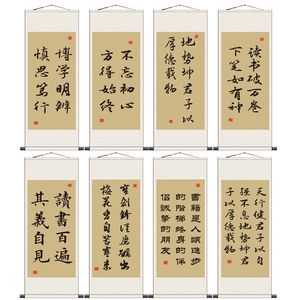 博学明辨
慎思笃行
不忘初心
方得始终
地势坤君子以
厚德载物
读书破万卷
下笔如有神
讀書百遍
其義自見
宝剑锋从磨砺出
梅花香自苦寒来
書籍是人類進步
的階梯終身的伴
侣誠摯的朋友
天行健君子以自
强不息地势坤君
子以厚德载物